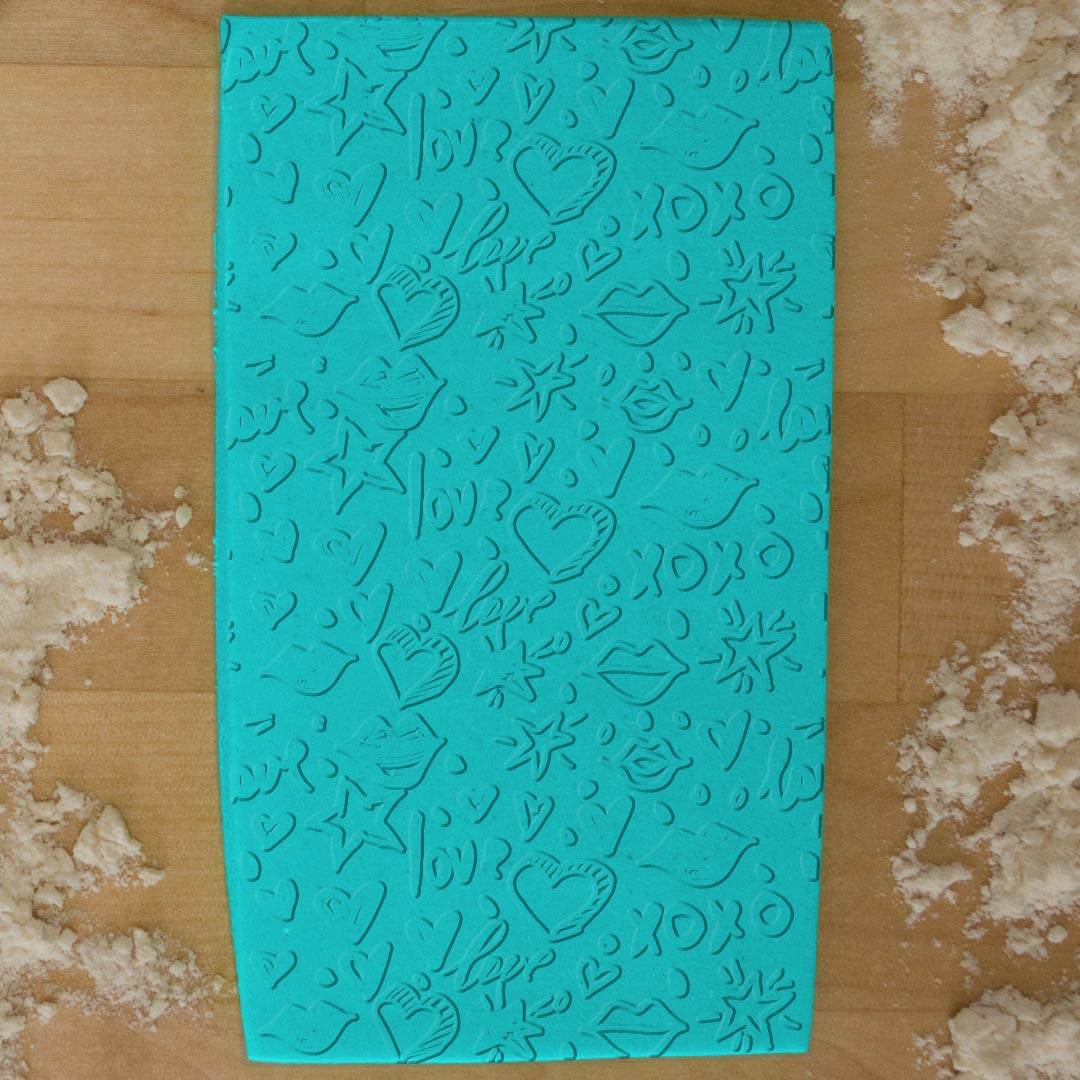 love
xoxo
love
love
xoxo
love
love
xoxo
love